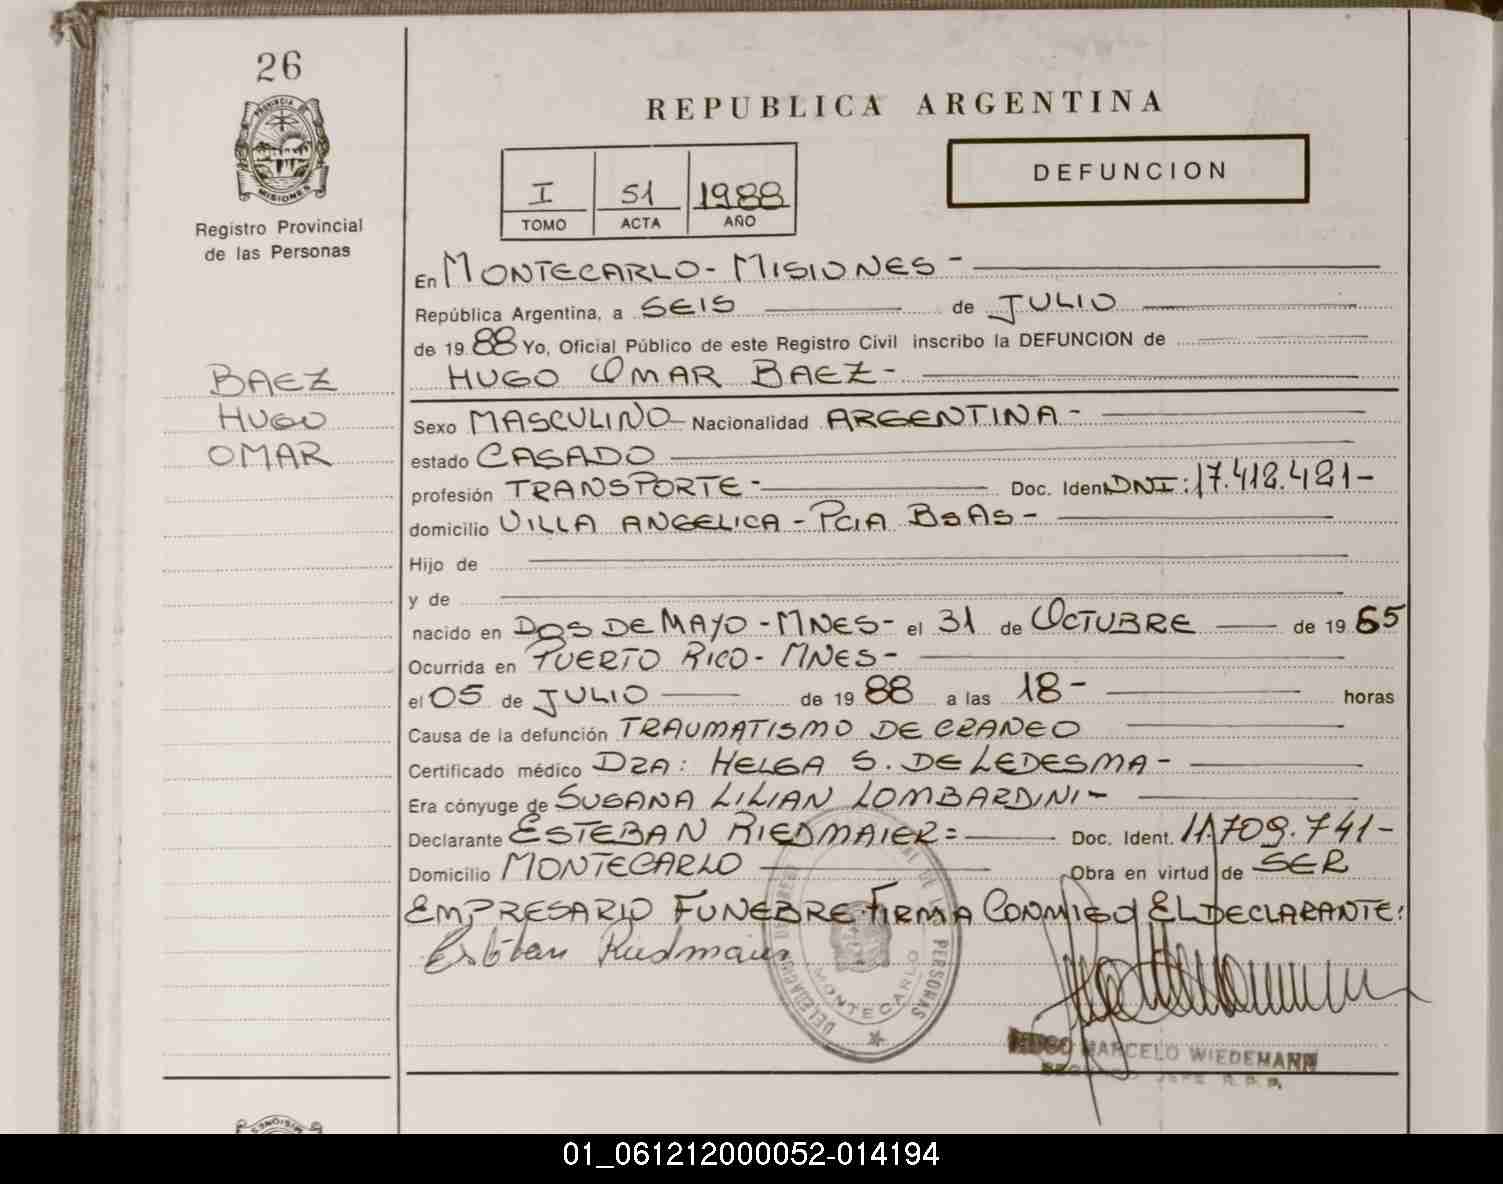 26
PROVINCIA DE
MISIONES
Registro Provincial
de las Personas
REPUBLICA ARGENTINA
I 51 1988
TOMO ACTA AÑO
DEFUNCION
En MONTECARLO - MISIONES -
República Argentina, a SEIS de JULIO
de 19 88 Yo, Oficial Público de este Registro Civil inscribo la DEFUNCION de
BAEZ
HUGO
OMAR
HUGO OMAR BAEZ -
Sexo MASCULINO - Nacionalidad ARGENTINA -
estado CASADO
profesión TRANSPORTE - Doc. Ident. DNI: 17.412.421 -
domicilio VILLA ANGELICA - PCIA BSAS -
Hijo de
y de
nacido en DOS DE MAYO - MNES - el 31 de OCTUBRE de 19 65
Ocurrida en PUERTO RICO - MNES -
el 05 de JULIO de 19 88 a las 18 - horas
Causa de la defunción TRAUMATISMO DE CRANEO
Certificado médico DRA: HELGA S. DE LEDESMA -
Era cónyuge de SUSANA LILIAN LOMBARDINI -
Declarante ESTEBAN RIEDMAIER = Doc. Ident. 11.709.741 -
Domicilio MONTECARLO Obra en virtud de SER
EMPRESARIO FUNEBRE. FIRMA CONMIGO EL DECLARANTE:
Esteban Riedmaier
MONTECARLO
HUGO MARCELO WIEDEMANN
MISIONES
01_061212000052-014194